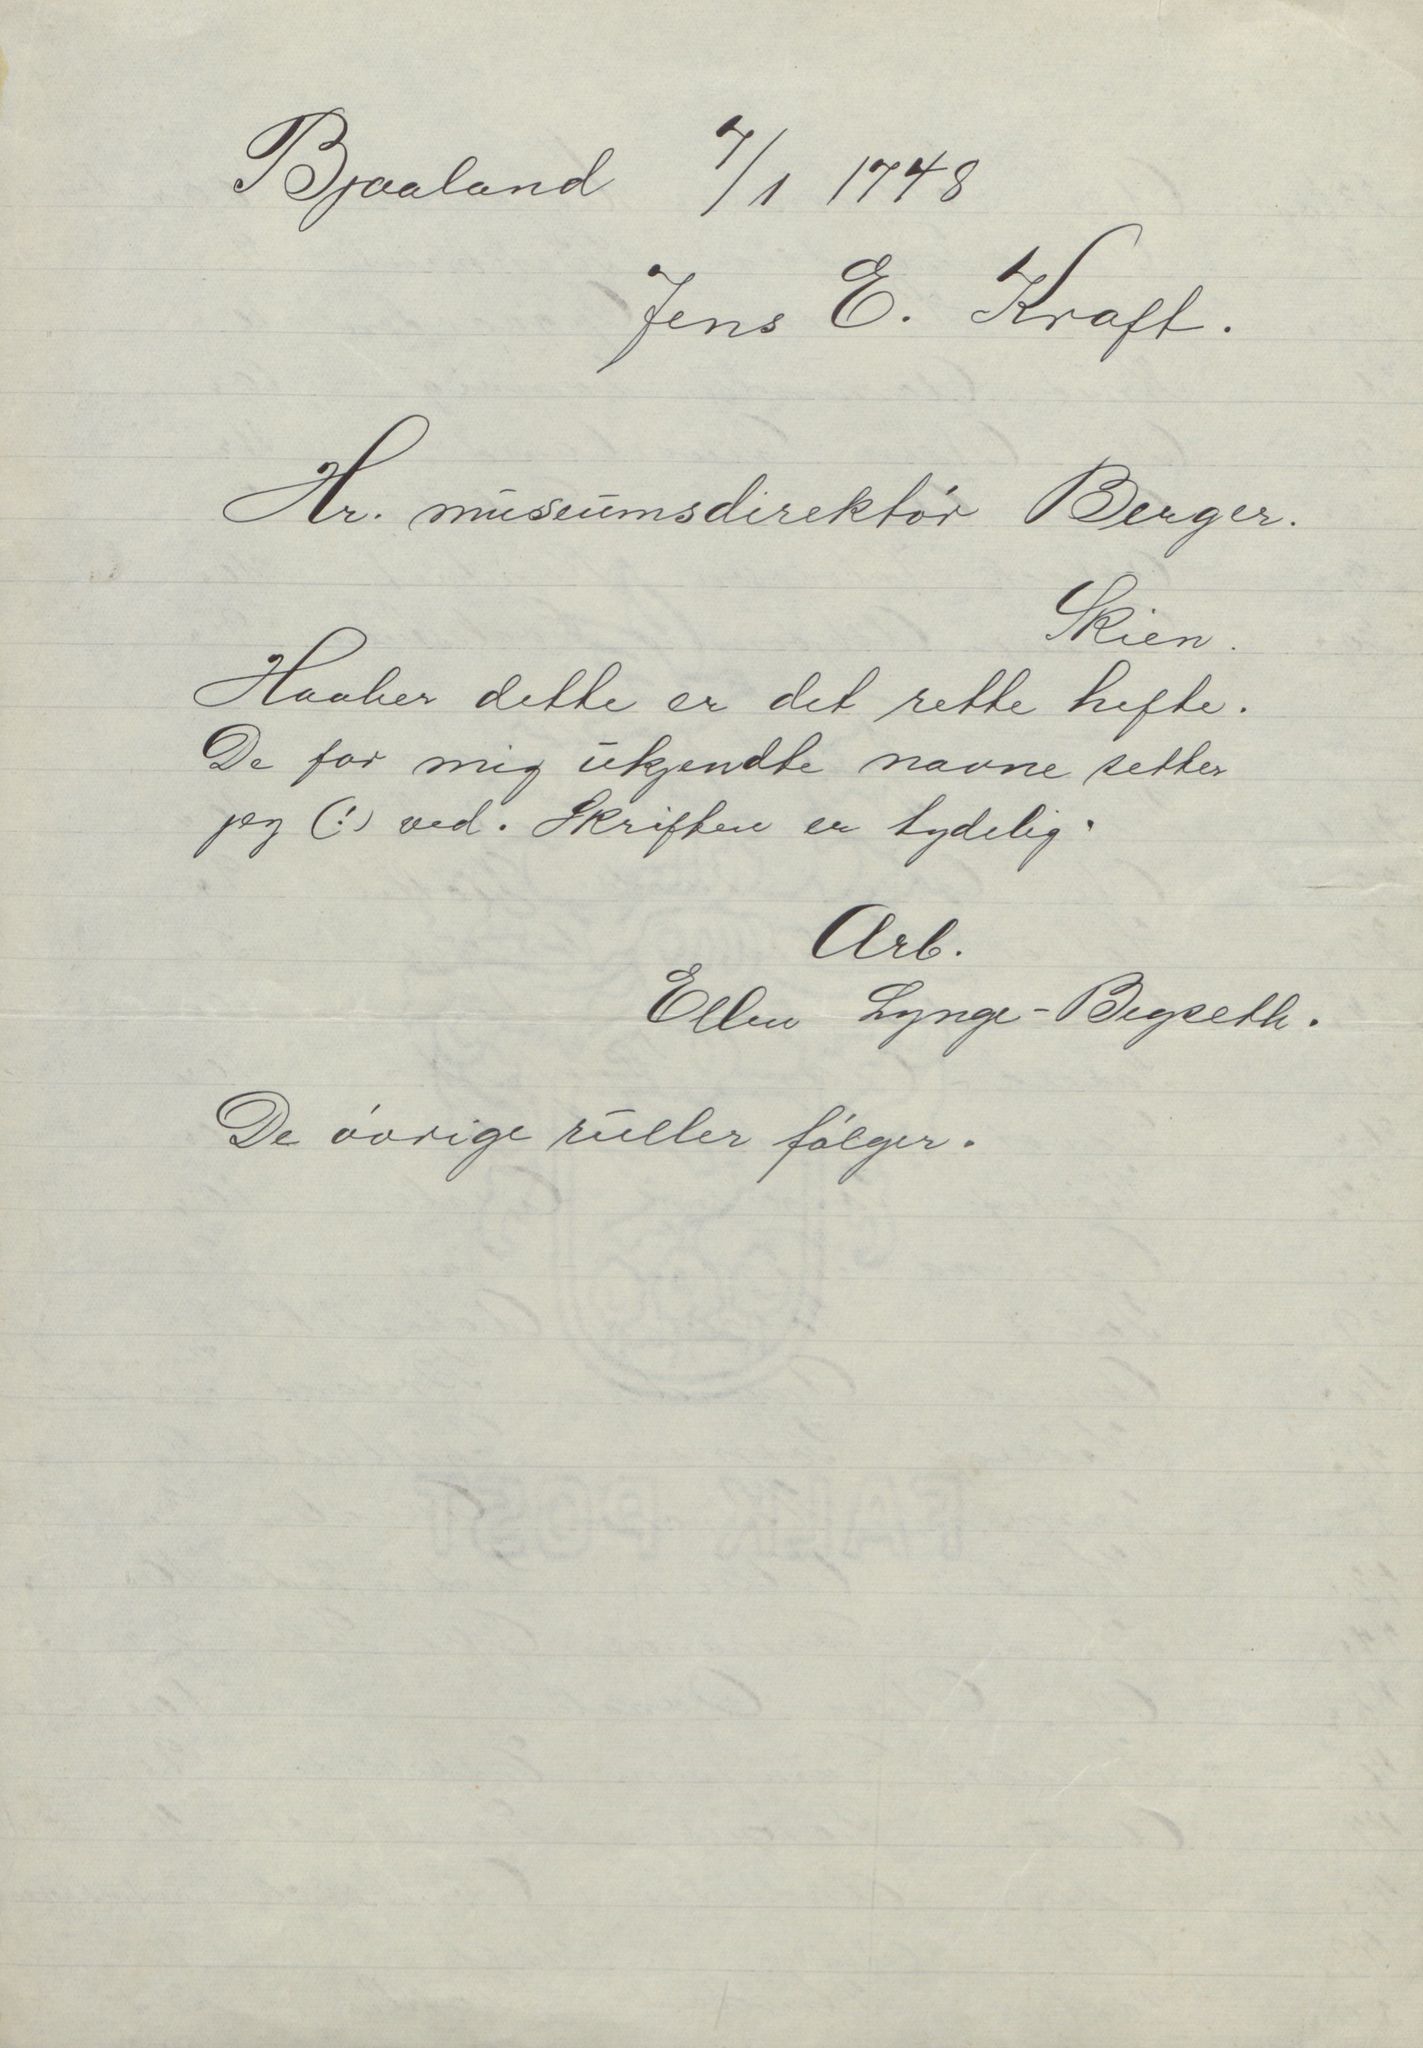 Bjaaland 7/1 1748
Jens E. Kraft.
Hr. museumsdirektör Berger.
Skien.
Haaber dette er det rette hefte.
De for mig ukjendte navne setter
jeg (!) ved. Skriften er tydelig.
Arb.
Ellen Lynge-Begseth.
De övrige ruller fölger.
FALK POST